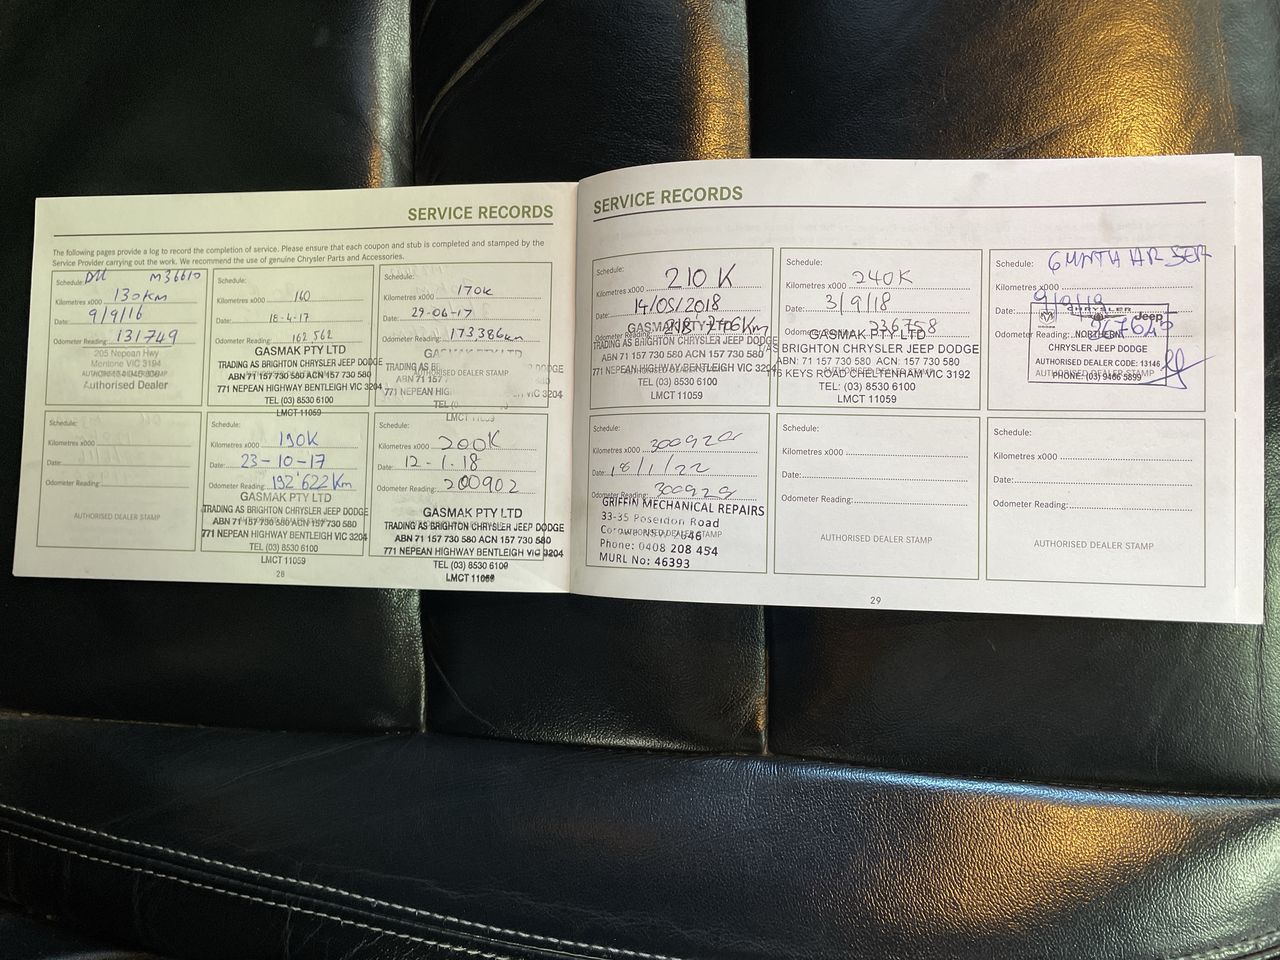 SERVICE RECORDS
The following pages provide a log to record the completion of service. Please ensure that each coupon and stub is completed and stamped by the
Service Provider carrying out the work. We recommend the use of genuine Chrysler Parts and Accessories.
Schedule: M36610
Kilometres x000 130km
Date: 9/9/16
Odometer Reading: 131749
205 Nepean Hwy
Mentone VIC 3194
AUTHORISED DEALER STAMP
Authorised Dealer
Schedule:
Kilometres x000 140
Date: 18-4-17
Odometer Reading: 162 562
GASMAK PTY LTD
TRADING AS BRIGHTON CHRYSLER JEEP DODGE
ABN 71 157 730 580 ACN 157 730 580
771 NEPEAN HIGHWAY BENTLEIGH VIC 3204
TEL (03) 8530 6100
LMCT 11059
Schedule:
Kilometres x000 170K
Date: 29-06-17
Odometer Reading: 173386km
GASMAK PTY LTD
TRADING AS DODGE
AUTHORISED DEALER STAMP
ABN 71 157
771 NEPEAN HIGHWAY VIC 3204
TEL
LMCT 11059
Schedule:
Kilometres x000
Date:
Odometer Reading:
AUTHORISED DEALER STAMP
Schedule:
Kilometres x000 190K
Date: 23-10-17
Odometer Reading: 192'622 Km
GASMAK PTY LTD
TRADING AS BRIGHTON CHRYSLER JEEP DODGE
ABN 71 157 730 580 ACN 157 730 580
771 NEPEAN HIGHWAY BENTLEIGH VIC 3204
TEL (03) 8530 6100
LMCT 11059
Schedule:
Kilometres x000 200K
Date: 12-1.18
Odometer Reading: 200902
GASMAK PTY LTD
TRADING AS BRIGHTON CHRYSLER JEEP DODGE
ABN 71 157 730 580 ACN 157 730 580
771 NEPEAN HIGHWAY BENTLEIGH VIC 3204
TEL (03) 8530 6100
LMCT 11059
28
SERVICE RECORDS
Schedule:
Kilometres x000 210 K
Date: 14/05/2018
Odometer Reading: Km
GASMAK PTY LTD
TRADING AS BRIGHTON CHRYSLER JEEP DODGE
ABN 71 157 730 580 ACN 157 730 580
771 NEPEAN HIGHWAY BENTLEIGH VIC 3204
TEL (03) 8530 6100
LMCT 11059
Schedule:
Kilometres x000 240K
Date: 3/9/18
Odometer Reading: 236758
GASMAK PTY LTD
BRIGHTON CHRYSLER JEEP DODGE
ABN: 71 157 730 580 ACN: 157 730 580
KEYS ROAD CHELTENHAM VIC 3192
AUTHORISED DEALER STAMP
TEL: (03) 8530 6100
LMCT 11059
Schedule: 6 MNTH
Kilometres x000
Date:
Odometer Reading:
CHRYSLER
Jeep
RAM
NORTHERN
CHRYSLER JEEP DODGE
AUTHORISED DEALER CODE: 13146
AUTHORISED DEALER STAMP
PHONE: (03) 9466 5899
Schedule:
Kilometres x000 300920
Date: 18/1/22
Odometer Reading: 300920
GRIFFIN MECHANICAL REPAIRS
33-35 Poseidon Road
Corowa NSW 2646
AUTHORISED DEALER STAMP
Phone: 0408 208 454
MURL No: 46393
Schedule:
Kilometres x000
Date:
Odometer Reading:
AUTHORISED DEALER STAMP
Schedule:
Kilometres x000
Date:
Odometer Reading:
AUTHORISED DEALER STAMP
29